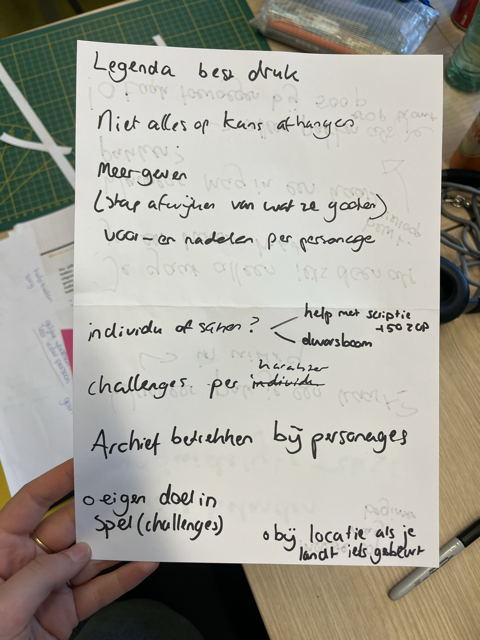 Legenda best druk
Niet alles op kans afhangen
Meer geven
(stap afwijken van wat ze gooien)
voor- en nadelen per personage
individu of samen?
help met scriptie
+50 ZCP
dwarsboom
karakter
challenges per individu
Archief betrekken bij personages
o eigen doel in
spel (challenges)
o bij locatie als je
landt iets gebeurt